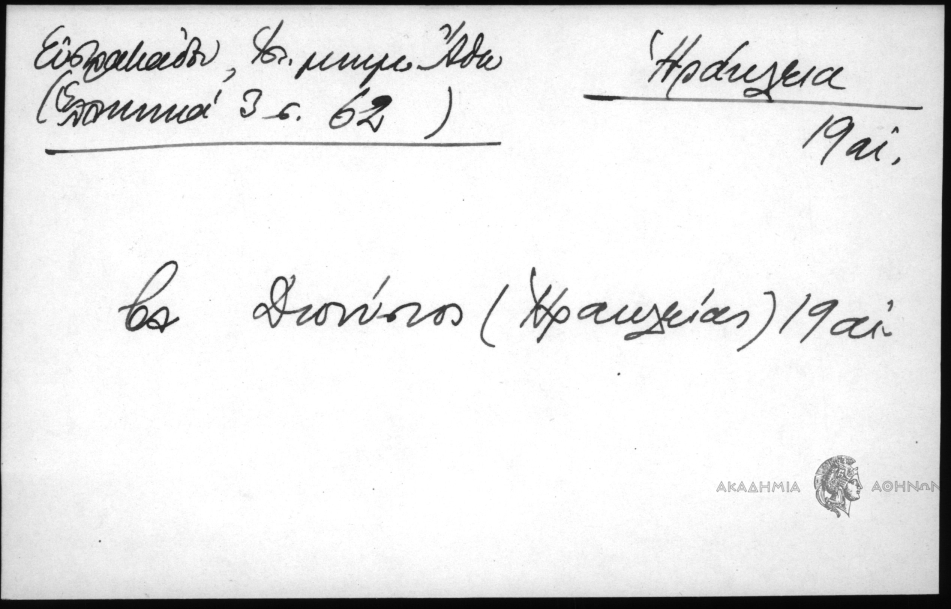 Εὐστρατιάδου, Ἱστ. μνημ. Ἄθω
(Ἑλληνικά 3 σ. 62)
Ἡράκλεια
19 αἰ.
βλ Διονύσιος (Ἡρακλείας) 19 αἰ.
ΑΚΑΔΗΜΙΑ ΑΘΗΝΩΝ